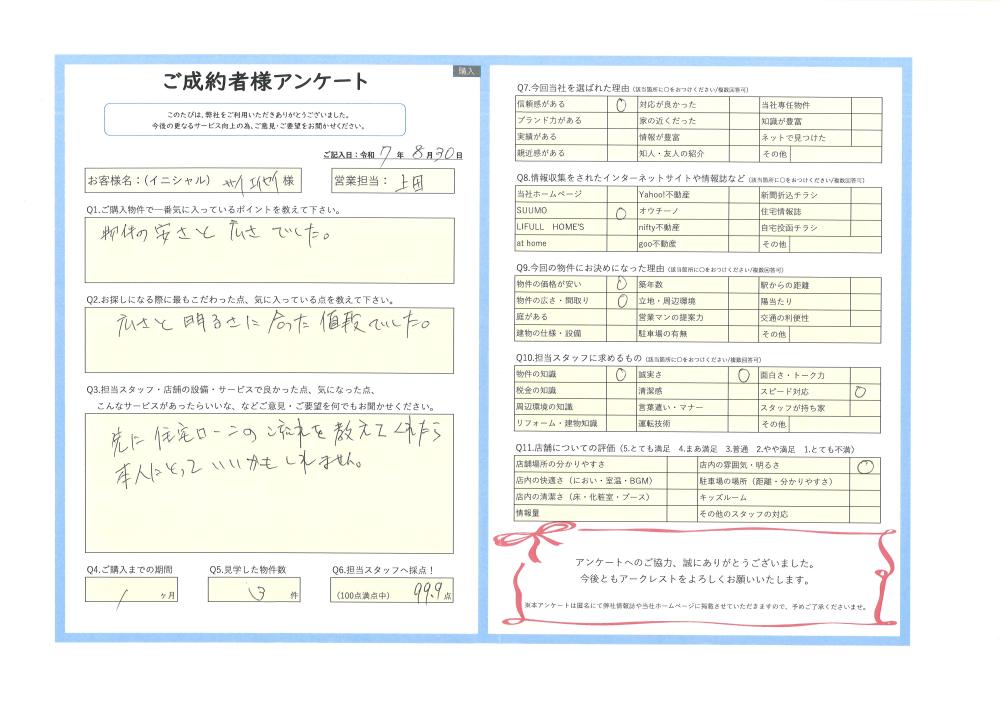 購入
ご成約者様アンケート
このたびは、弊社をご利用いただきありがとうございました。
今後の更なるサービス向上の為、ご意見・ご要望をお聞かせください。
ご記入日：令和 7 年 8 月 30 日
お客様名：（イニシャル） 様
営業担当： 上田
Q1.ご購入物件で一番気に入っているポイントを教えて下さい。
物件の安さと広さでした。
Q2.お探しになる際に最もこだわった点、気に入っている点を教えて下さい。
広さと明るさに合った値段でした。
Q3.担当スタッフ・店舗の設備・サービスで良かった点、気になった点、
こんなサービスがあったらいいな、などご意見・ご要望を何でもお聞かせください。
先に住宅ローンの流れを教えてくれたら
本人にとっていいかもしれません。
Q4.ご購入までの期間
1 ヶ月
Q5.見学した物件数
3 件
Q6.担当スタッフへ採点！
（100点満点中） 99.9 点
Q7.今回当社を選ばれた理由（該当箇所に○をおつけください/複数回答可）
信頼感がある ○ 対応が良かった 当社専任物件
ブランド力がある 家の近くだった 知識が豊富
実績がある 情報が豊富 ネットで見つけた
親近感がある 知人・友人の紹介 その他
Q8.情報収集をされたインターネットサイトや情報誌など（該当箇所に○をおつけください/複数回答可）
当社ホームページ Yahoo!不動産 新聞折込チラシ
SUUMO ○ オウチーノ 住宅情報誌
LIFULL HOME'S nifty不動産 自宅投函チラシ
at home goo不動産 その他
Q9.今回の物件にお決めになった理由（該当箇所に○をおつけください/複数回答可）
物件の価格が安い ○ 築年数 駅からの距離
物件の広さ・間取り ○ 立地・周辺環境 陽当たり
庭がある 営業マンの提案力 交通の利便性
建物の仕様・設備 駐車場の有無 その他
Q10.担当スタッフに求めるもの（該当箇所に○をおつけください/複数回答可）
物件の知識 ○ 誠実さ ○ 面白さ・トーク力
税金の知識 清潔感 スピード対応 ○
周辺環境の知識 言葉遣い・マナー スタッフが持ち家
リフォーム・建物知識 運転技術 その他
Q11.店舗についての評価（5.とても満足 4.まあ満足 3.普通 2.やや満足 1.とても不満）
店舗場所の分かりやすさ 店内の雰囲気・明るさ ○
店内の快適さ（におい・室温・BGM） 駐車場の場所（距離・分かりやすさ）
店内の清潔さ（床・化粧室・ブース） キッズルーム
情報量 その他のスタッフの対応
アンケートへのご協力、誠にありがとうございました。
今後ともアークレストをよろしくお願いいたします。
※本アンケートは匿名にて弊社情報誌や当社ホームページに掲載させていただきますので、予めご了承くださいませ。